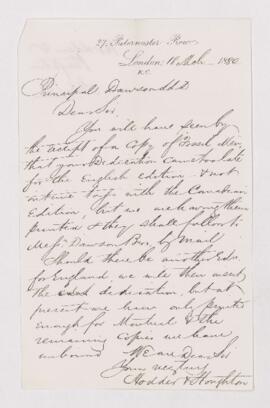 27, Paternoster Row,
London: 18 Mch 1880
E.C.
Principal Dawson LLD
Dear Sir,
You will have seen by
the receipt of a Copy of Fossil Men
that your Dedication came too late
for the English edition & not
in time to go with the Canadian
Edition, but we are having them
printed & they shall follow to
Messrs Dawson Bros. by Mail
Should there be another Edn.
for England we will then insert
the dedication, but at
present we have only printed
enough for Montreal & the
remaining copies we have
unbound
We are Dear Sir
Yours very truly
Hodder & Stoughton